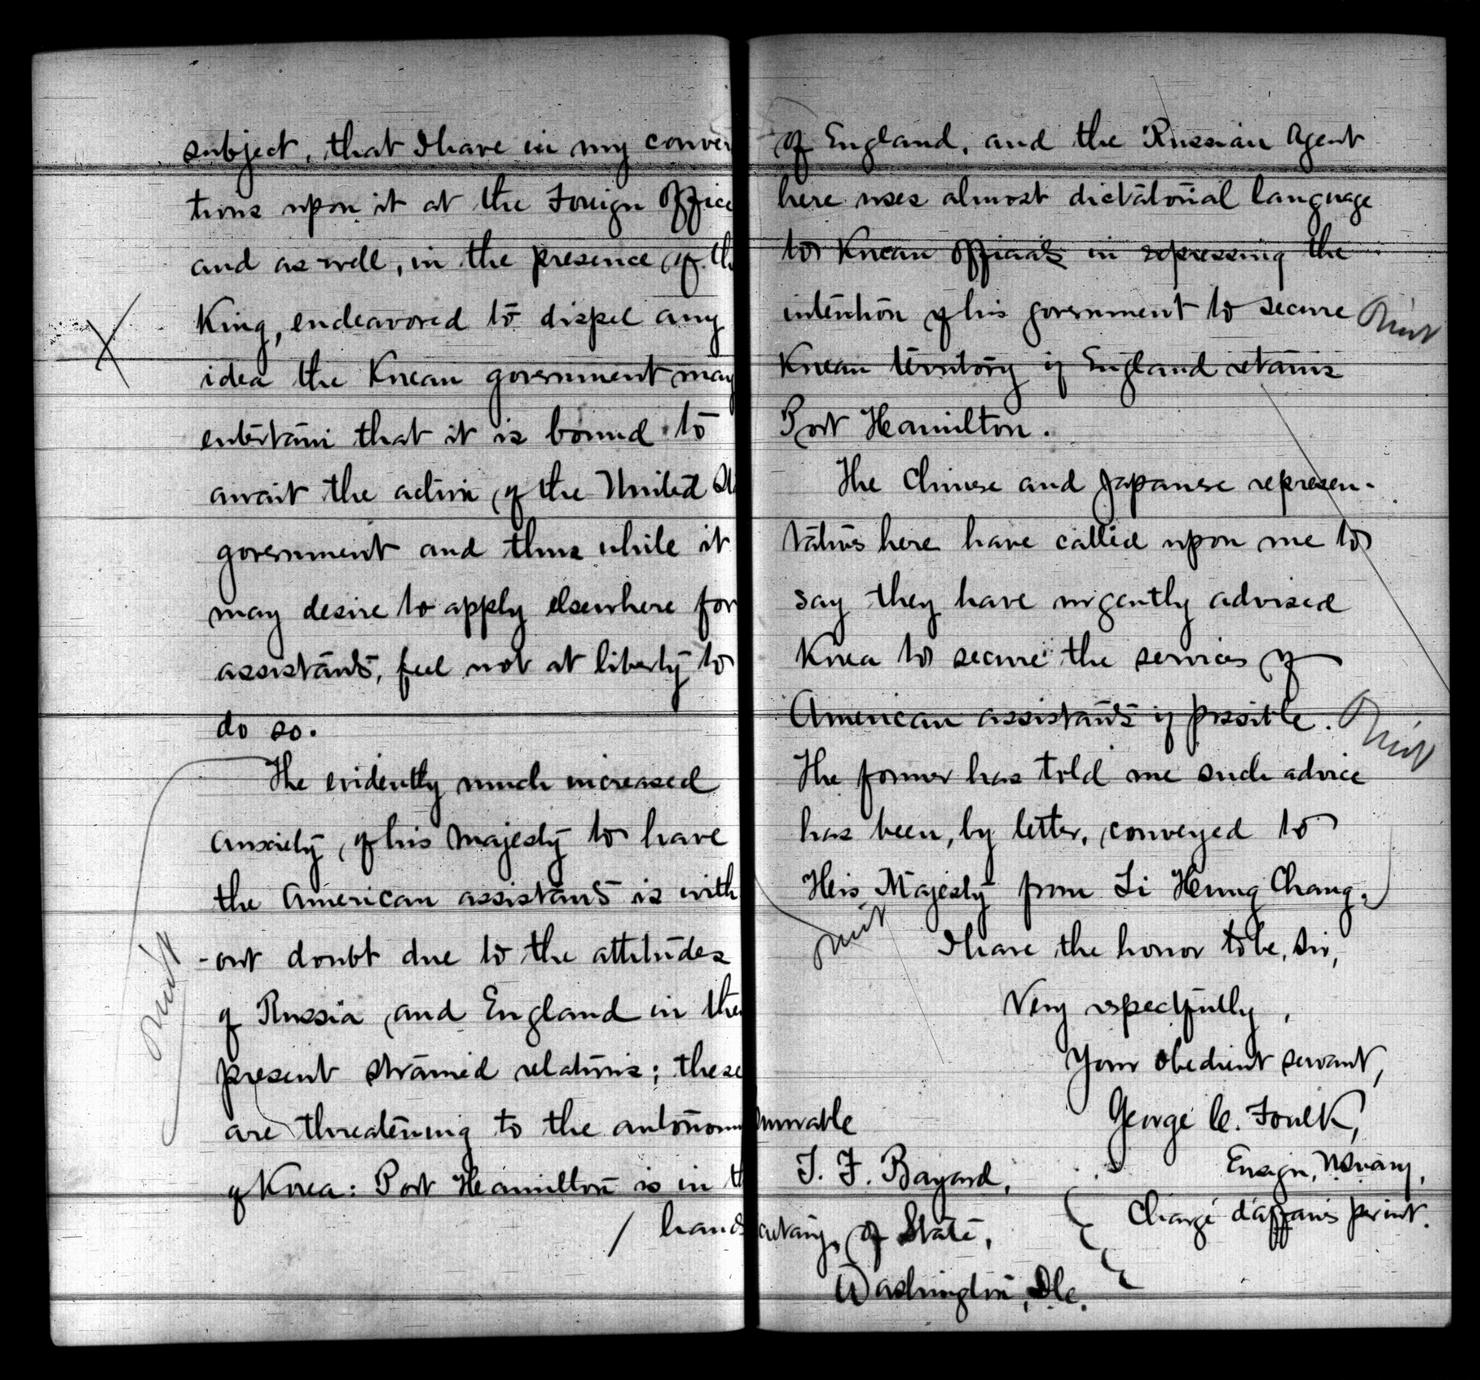 subject, that I have in my conver
tions upon it at the Foreign Office
and as well, in the presence of th
King, endeavored to dispel any
idea the Korean government may
entertain that it is bound to
await the action of the United St
government and thus while it
may desire to apply elsewhere for
assistants, feel not at liberty to
do so.
The evidently much increased
anxiety of his Majesty to have
the American assistants is with
-out doubt due to the attitudes
of Russia and England in the
present strained relations; these
are threatening to the autonom
of Korea: Port Hamilton is in th
/ hands
Print
of England, and the Russian Agent
here uses almost dictatorial language
to Korean officials in expressing the
intention of his government to secure
Print
Korean territory if England retains
Port Hamilton.
The Chinese and Japanese represen-
tatives here have called upon me to
say they have urgently advised
Korea to secure the services of
American assistants if possible.
Print
The former has told me such advice
has been, by letter, conveyed to
His Majesty from Li Hung Chang.
Print
I have the honor to be, Sir,
Very respectfully,
Your obedient servant,
George C. Foulk,
Ensign, U.S. Navy,
Chargé d'affaires per int.
norable
T. F. Bayard,
cretary of State,
Washington, D.C.